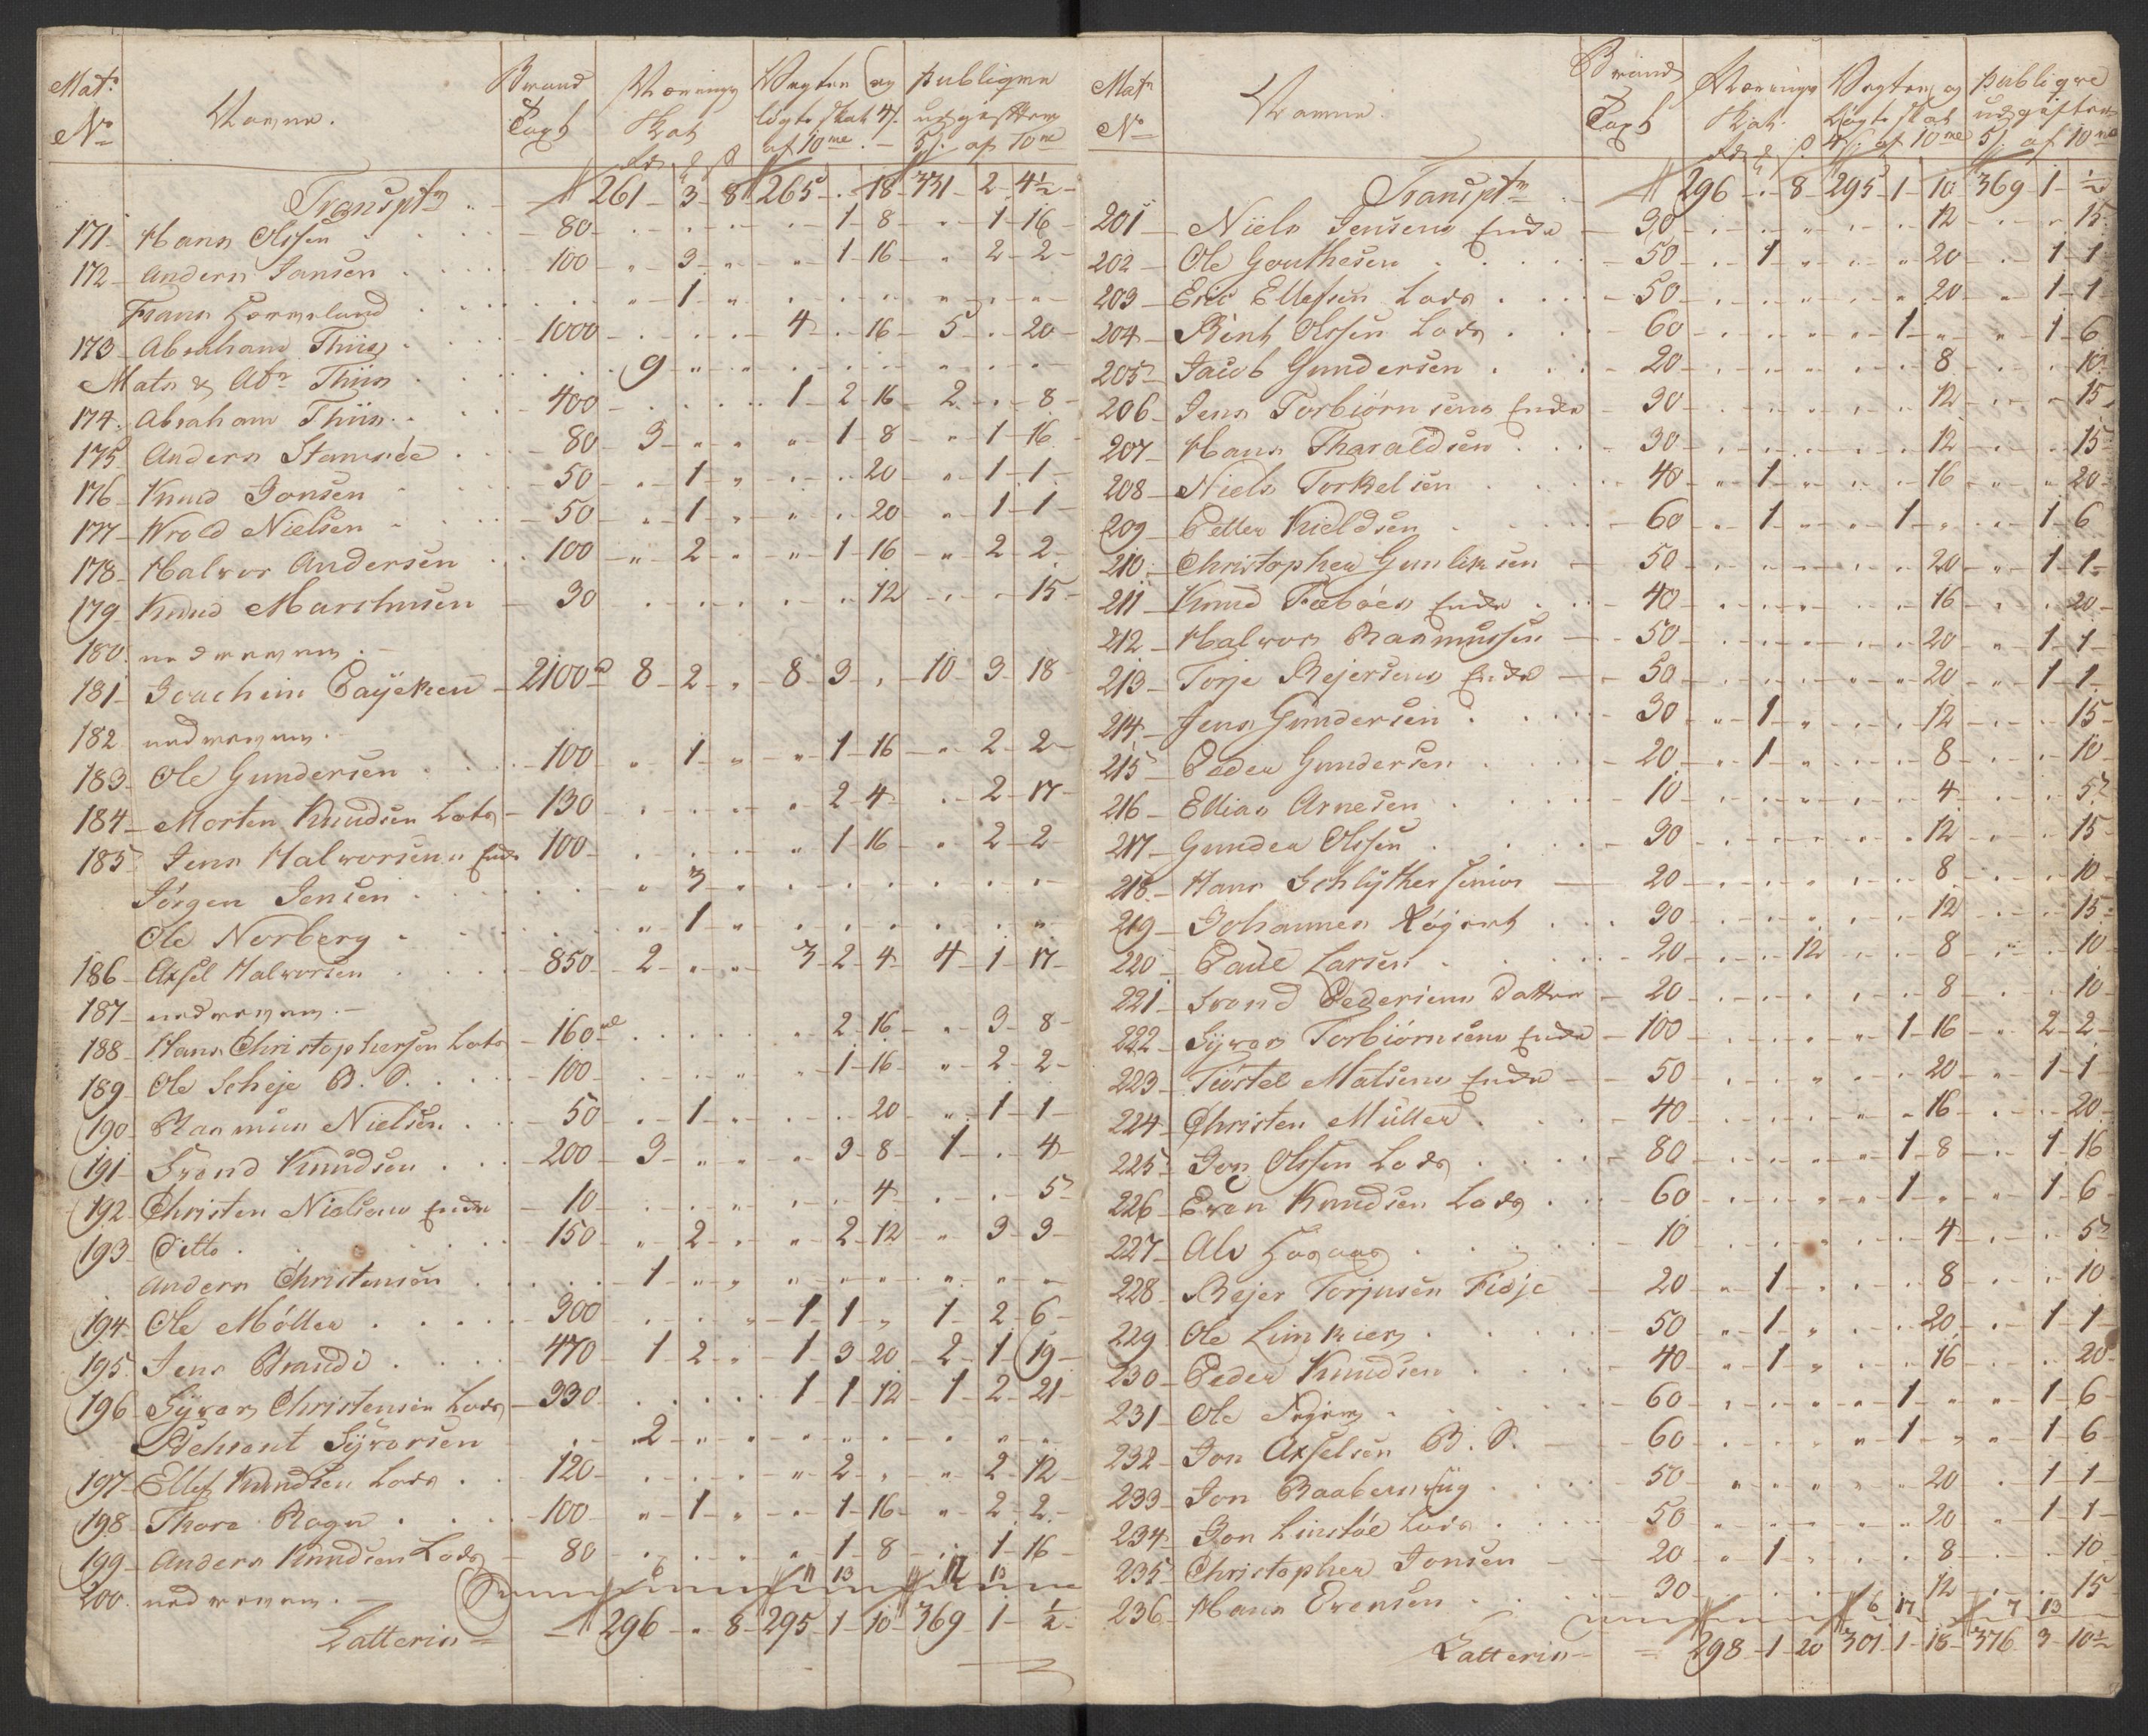 Mats No Navne. Brand Taxt Nærings Skat Vegter og løgte skat 4 s. af 10 me Publiqve udgifter 5 s. af 10 me
Transptn 261 - 3 - 8 265 - . - 18 331 - 2 - 4½
171 Hans Olsen 80 1 - 8 1 - 16
172 Anders Jansen 100 3 1 - 16 2 - 2
Frans 1
173 Abraham Thiis 1000 4 - . - 16 5 - . - 20
Mats & Abr Thiis 9
174 Abraham Thiis 400 1 - 2 - 16 2 - . - 8
175 Anders Stamsøe 80 3 1 - 8 1 - 16
176 Knud Jonsen 50 1 20 1 - 1
177 Wrold Nielsen 50 1 20 1 - 1
178 Halvor Andersen 100 2 1 - 16 2 - 2
179 Knud Marthusen 30 12 15
180 nedreven.
181 Joachim Payeken 2100 8 - 2 8 - 3 10 - 3 - 18
182 nedreven.
183 Ole Gundersen 100 1 1 - 16 2 - 2
184 Morten Knudsen Lots 130 2 - 4 2 - 17
185 Jens Halvorsens Enke 100 1 - 16 2 - 2
Jørgen Jensen 3
Ole Norberg 1
186 Axsel Halvorsen 850 2 3 - 2 - 4 4 - 1 - 17
187 nedreven.
188 Hans Christophersen Lots 160 2 - 16 3 - 8
189 Ole Scheje B. S. 100 1 - 16 2 - 2
190 Rasmus Nielsen 50 1 20 1 - 1
191 Trond Knudsen 200 3 3 - 8 1 - . - 4
192 Christen Nielsens Enke 10 4 5
193 Ditto 150 2 2 - 12 3 - 3
Anders Christensen 1
194 Ole Møller 300 1 - 1 1 - 2 - 6
195 Jens Strandi 470 1 - 2 1 - 3 - 20 2 - 1 - 19
196 Syvers Christensen Lods 330 1 - 1 - 12 1 - 2 - 21
Syvorsen 2
197 Ellef Knudsen Lods 120 2 2 - 12
198 Thore Rogn 100 1 1 - 16 2 - 2
199 Anders Knudsen Lods 80 1 - 8 1 - 16
200 nedreven. 6 11 13 12 13
Latterin 296 - " - 8 295 - 1 - 10 369 - 1 - ½
Mats No Navne. Brand Taxt Nærings Skat Vegter og Løgte skat 4 s. af 10 me Publiqve udgifter 5 s. af 10 me
Transptn 296 - . - 8 295 - 1 - 10 369 - 1 - ½
201 Niels Jensens Enke 30 12 15
202 Ole Gouthesen 50 1 20 1 - 1
203 Eric Ellefsen Lods 50 20 1 - 1
204 Bent Olsen Lods 60 1 1 - 6
205 Jacob Gundersen 20 8 10
206 Jens Torbiørnsens Enke 30 12 15
207 Hans Tharaldsen 30 12 15
208 Niels Torkelsen 40 1 16 20
209 Petter Kieldsen 60 1 1 1 - 6
210 Christopher Gunleksen 50 20 1 - 1
211 Knud Febøes Enke 40 16 20
212 Halvor Rasmussen 50 20 1 - 1
213 Torje Rejersens Enke 50 20 1 - 1
214 Jens Gundersen 30 1 12 15
215 Peder Gundersen 20 1 8 10
216 Ellias Arnesen 10 4 5
217 Gunder Olsen 30 12 15
218 Hans Schlyther senior 20 8 10
219 Johannes Køgert 30 12 15
220 Paul Larsen 20 12 8 10
221 Trond Pedersens Datter 20 8 10
222 Syvers Torbiørnsens Enke 100 1 - 16 2 - 2
223 Tiøstel Matsens Enke 50 20 1 - 1
224 Christen Müller 40 16 20
225 Jon Olsen Lods 80 1 - 8 1 - 16
226 Even Knudsen Lods 60 1 1 - 6
227 Als 10 4 5
228 Rejer Torjusen Fidje 20 1 8 10
229 Ole Limkier 50 1 20 1 - 1
230 Peder Knudsen 40 1 16 20
231 Ole 60 1 1 - 6
232 Jon Axselsen B. S. 60 1 1 - 6
233 Jon 50 20 1 - 1
234 Jon Linstøl Lods 50 20 1 - 1
235 Christopher Jonsen 20 1 8 10
236 Hans Evensen 30 12 15
6 17 7 13
Latterin 298 - 1 - 20 301 - 1 - 18 376 - 3 - 10½